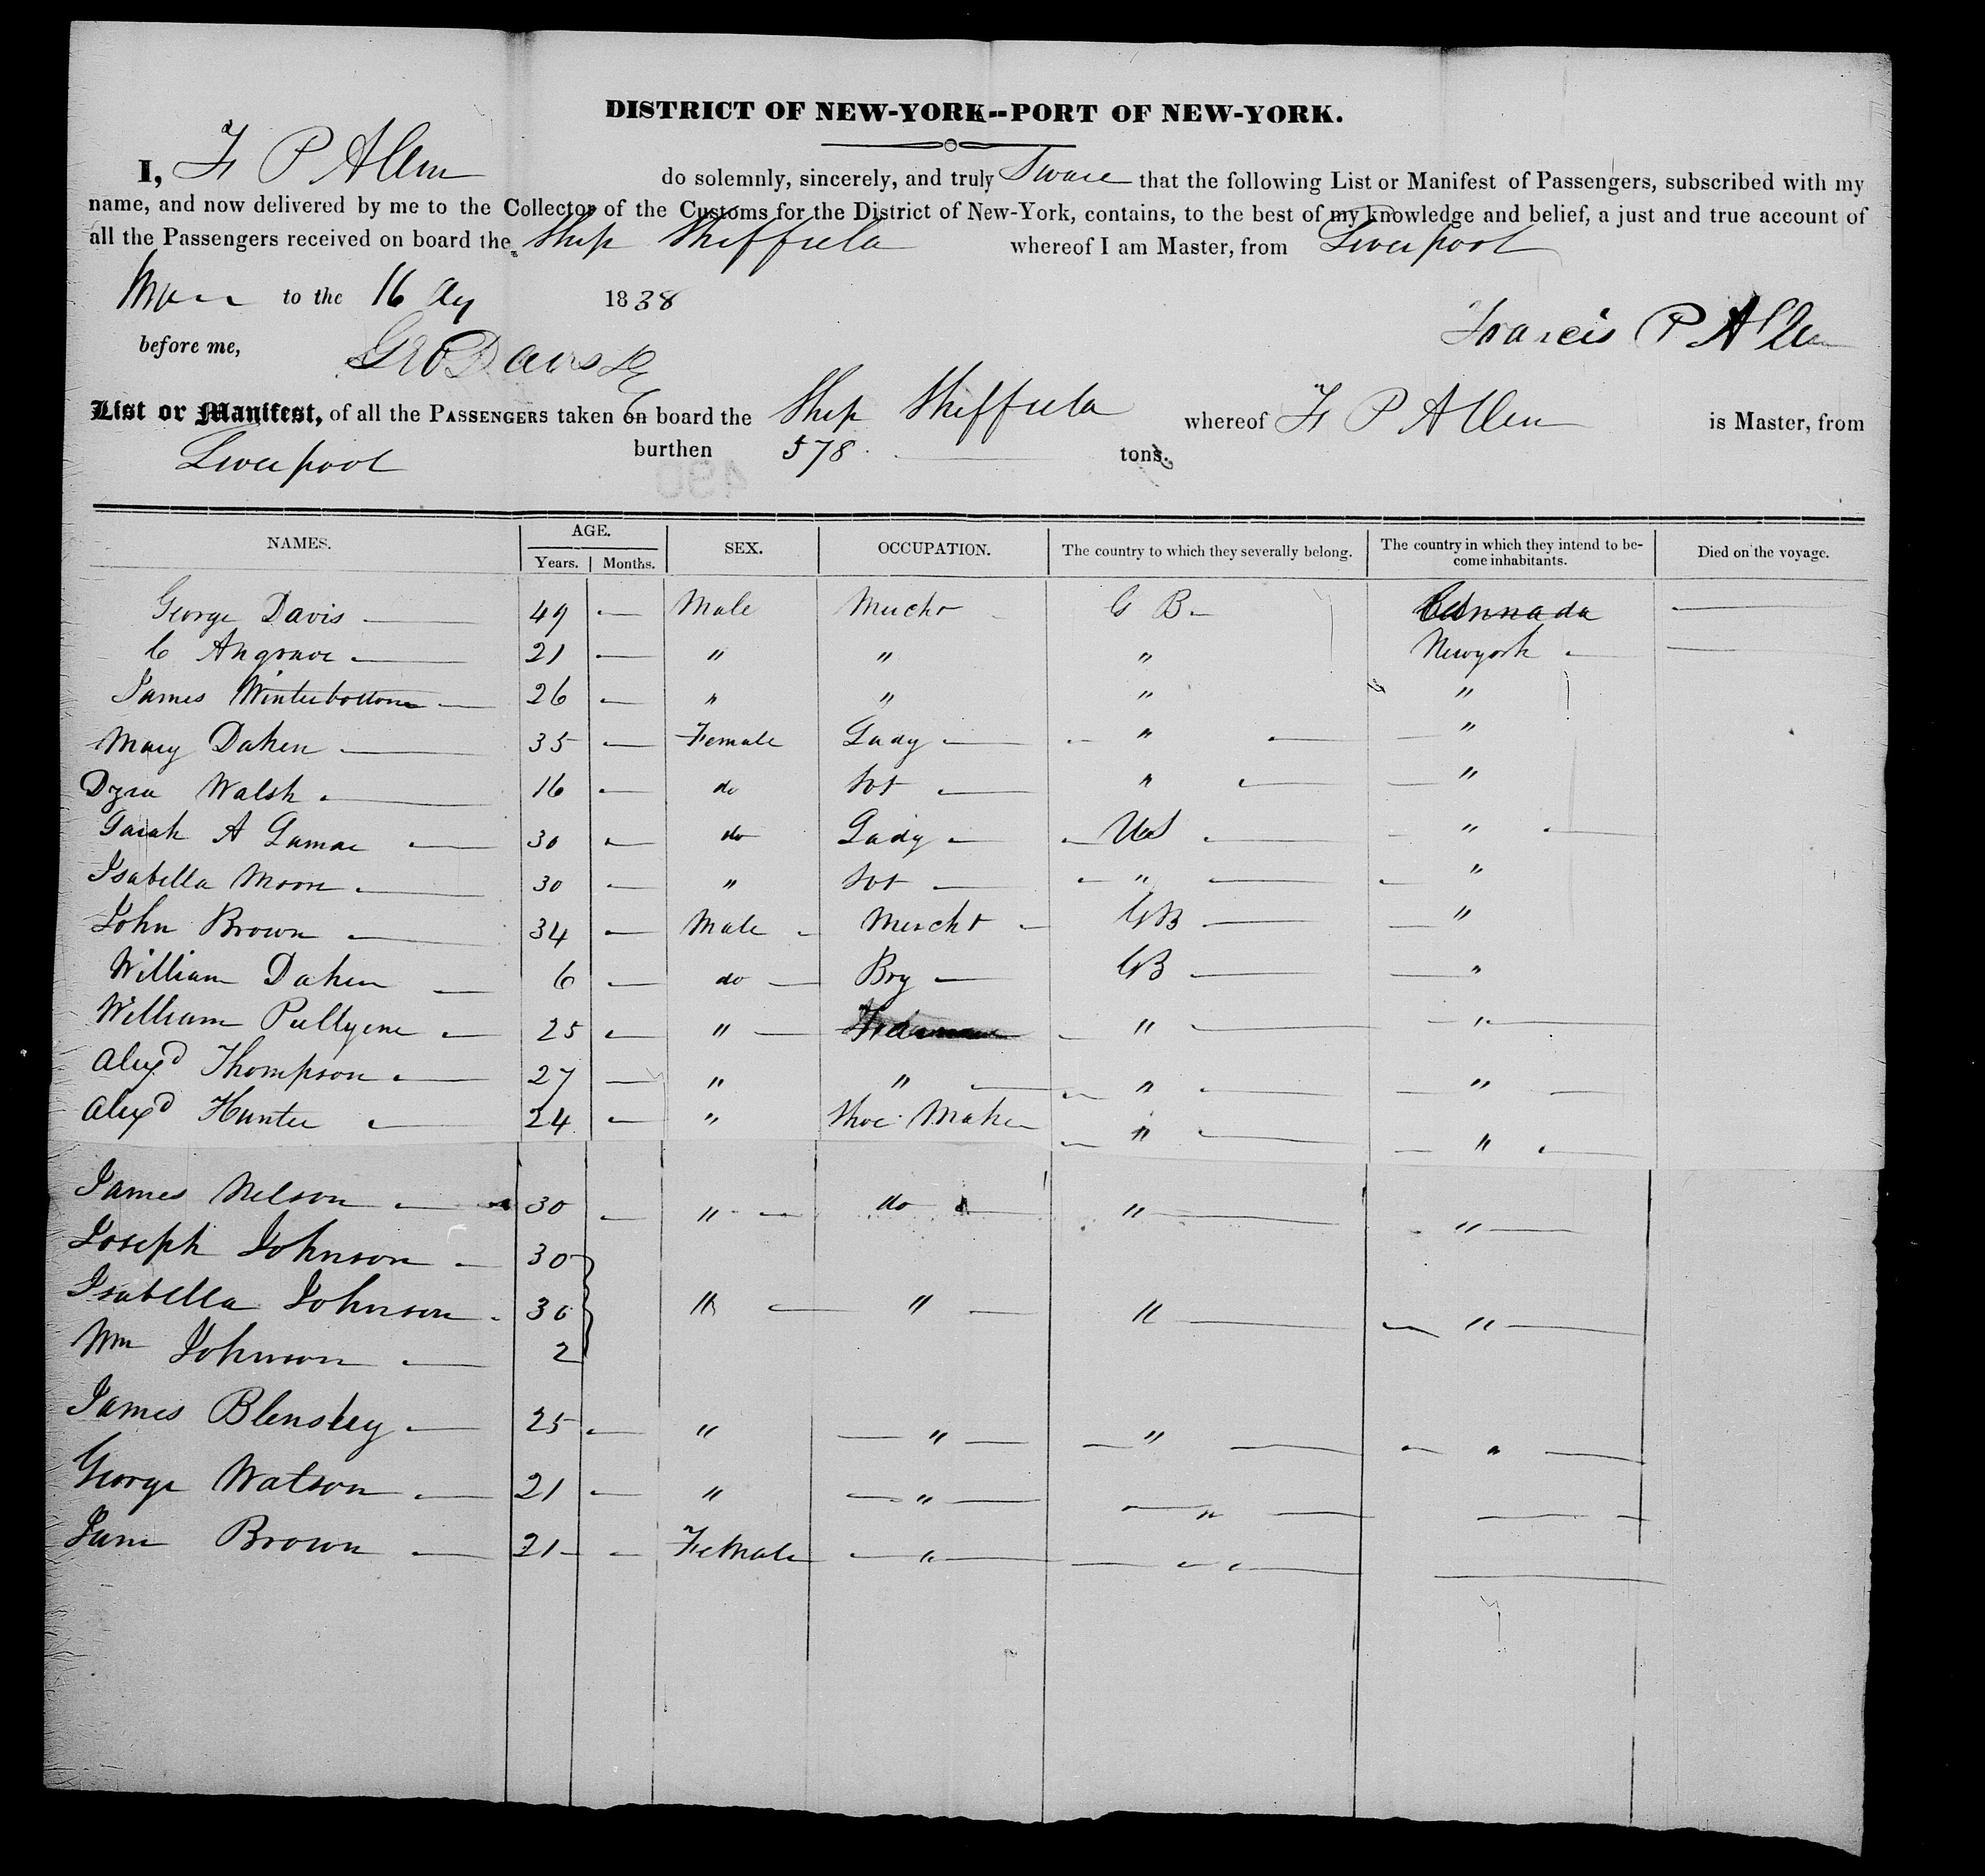 DISTRICT OF NEW-YORK--PORT OF NEW-YORK.
I, F P Allen do solemnly, sincerely, and truly Sware that the following List or Manifest of Passengers, subscribed with my
name, and now delivered by me to the Collector of the Customs for the District of New-York, contains, to the best of my knowledge and belief, a just and true account of
all the Passengers received on board the Ship Sheffield whereof I am Master, from Liverpool
to the 16 1838
Francis P Allen
before me,
List or Manifest, of all the PASSENGERS taken on board the Ship Sheffield whereof F P Allen is Master, from
Liverpool burthen 578 tons.
NAMES. AGE. SEX. OCCUPATION. The country to which they severally belong. The country in which they intend to be- Died on the voyage.
Years. Months. come inhabitants.
George Davis — 49 — Male Mercht G B — Cannada —
C Angrave — 21 — " " " Newyork —
James Winterbottom — 26 — " " " "
Mary Daken — 35 — Female Lady — " "
Walsh — 16 — do " "
Sarah A Lamar — 30 — do Lady — US — "
Isabella Moore — 30 — " — " — "
John Brown — 34 — Male Mercht — GB — "
William Daken — 6 — do — Boy — GB — "
William — 25 — " — " — "
Alexd Thompson — 27 — " " — " — "
Alexd Hunter — 24 — " Shoe Maker " — "
James Nelson — 30 — " — do — " — "
Joseph Johnson — 30
Isabella Johnson - 30 " — " — " — "
Wm Johnson — 2
James Blenskey — 25 — " — " — " — "
George Watson — 21 — " — " — " —
Jane Brown — 21 — Female — " — " —